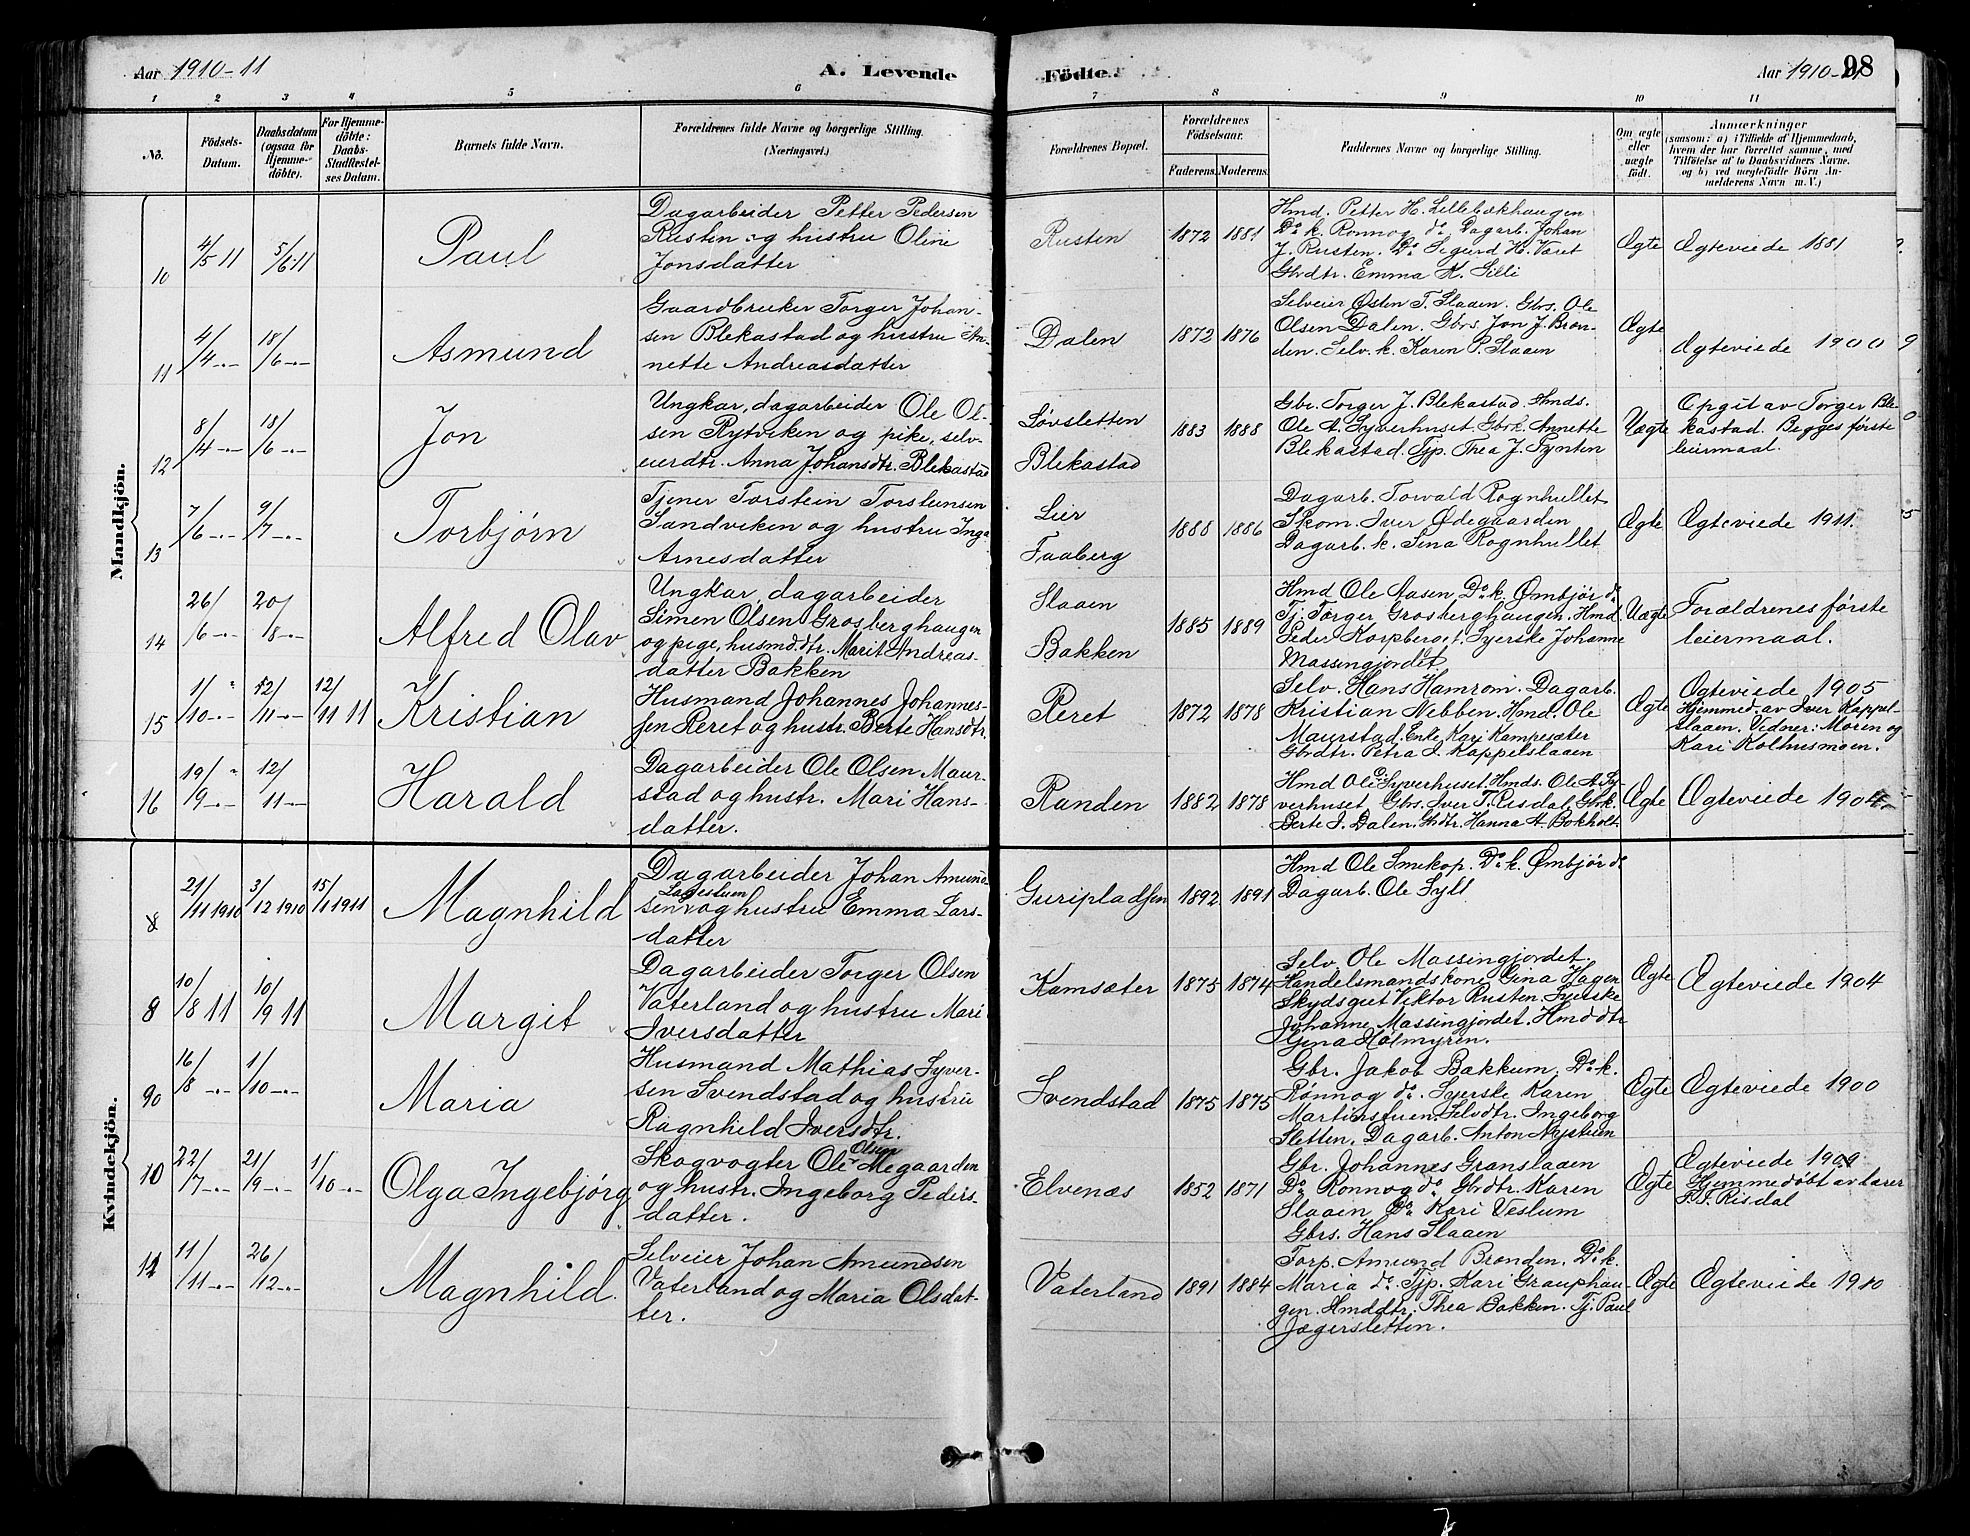 Aar 1910-11
A. Levende
Fødte.
Aar 1910-11
98
1 2 3 4 5 6 7 8 9 10 11
No.
Fødsels-
Datum.
Daabsdatum
(ogsaa for
Hjemme-
døbte).
For Hjemme-
døbte:
Daabs-
Stadfæstel-
ses Datum.
Barnets fulde Navn.
Forældrenes fulde Navne og borgerlige Stilling.
(Næringsvei.)
Forældrenes Bopæl.
Forældrenes
Fødselsaar.
Faderens. Moderens.
Faddernes Navne og borgerlige Stilling.
Om ægte
eller
uægte
født.
Anmærkninger
(saasom: a) i Tilfælde af Hjemmedaab,
hvem der har forrettet samme, med
Tilføielse af to Daabsvidners Navne.
og b) ved uægtefødte Børn An-
melderens Navn m. V.)
Mandkjøn.
10
4/5 11
5/6 11
Paul
Dagarbeider Petter Pedersen
Rusten og hustru Oline
Jonsdatter
Rusten
1872 1881
Hmd. Petter H. Lillebækhaugen
Do k. Ronnog do. Dagarb. Johan
J. Rusten. Do Sigurd H. Været
Gbrdtr. Emma K. Silli
Ægte
Ægteviede 1881
11
4/4 -"-
18/6 -"-
Asmund
Gaardbruker Torger Johan-
sen Blekastad og hustru An-
nette Andreasdatter
Dalen
1872 1876
Selveier Østen T. Slaaen. Gbrs. Ole
Olsen Dalen. Gbrs. Jon J. Bræn-
den. Selv. k. Karen P. Slaaen
Ægte
Ægteviede 1900
12
8/4 -"-
18/6 -"-
Jon
Ungkar, dagarbeider Ole Ol-
sen Rytviken og pike, selv-
eierdtr. Anna Johansdtr. Blekastad
Løvsletten
Blekastad
1883 1888
Gbr. Torger J. Blekastad. Hmds.
Ole A. Syverhuset. Gbrk. Annette
Blekastad. Tjp. Thea J. Tynten
Uægte
Opgit av Torger Ble-
kastad. Begges første
leiermaal.
13
7/6 -"-
9/7 -"-
Torbjørn
Tjener Torstein Torsteinsen
Sandviken og hustru Inga
Arnesdatter
Lier
Faaberg
1888 1886
Dagarb. Torvald Rognhullet
Skom. Iver Ødegaarden
Dagarb. k. Sina Rognhullet
Ægte
Ægteviede 1911.
14
26/6 -"-
20/8 -"-
Alfred Olav
Ungkar, dagarbeider
Simen Olsen Grosberghaugen
og pige, husmd.dtr. Marit Andreas-
datter Bakken
Slaaen
Bakken
1885 1889
Hmd Ole Aasen Do k. Ømbjør do
Tj. Torger Grosberghaugen. Hmd.
Peder Korpberget. Syerske Johanne
Massingjordet
Uægte
Forældrenes første
leiermaal.
15
1/10 -"-
12/11 -"-
12/11 11
Kristian
Husmand Johannes Johannes-
sen Reret og hustr. Berte Hansdtr.
Reret
1872 1878
Selv. Hans Hamrom. Dagarb.
Kristian Nebben. Hmd. Ole
Maurstad, Enke Kari Kampesæter
Gbrdtr. Petra I. Kappelslaaen
Ægte
Ægteviede 1905
Hjemmed. av Iver Kappel-
slaaen. Vidner: Moren og
Kari Kolhusmoen.
16
19/9 -"-
12/11 -"-
Harald
Dagarbeider Ole Olsen Maur-
stad og hustr. Mari Hans-
datter.
Randen
1882 1878
Hmd Ole O. Syverhuset. Hmds. Ole A. Sy-
verhuset Gbrs. Iver T. Risdal, Gbrk.
Berte I. Dalen. Gbrdtr. Hanna A. Bokholt.
Ægte
Ægteviede 1904
Kvindekjøn.
8
21/11 1910
3/12 1910
15/1 1911
Magnhild
Dagarbeider Johan Amund-
sen Lagestuen og hustru Emma Lars-
datter
Guripladsen
1892 1891
Hmd Ole Smekop. Do k. Ømbjør do
Dagarb. Ole Syll
8
10/8 11
10/9 11
Margit
Dagarbeider Torger Olsen
Vaterland og hustru Mari
Iversdatter
Kamsæter
1875 1874
Selv. Ole Massingjordet.
Handelsmandskone Gina Hagen
Skydsgut Viktor Rusten. Syerske
Johanne Massingjordet. Hmddtr
Gina Holmyren.
Ægte
Ægteviede 1904
9
16/8 -"-
1/10 -"-
Maria
Husmand Mathias Syver-
sen Svendstad og hustru
Ragnhild Iversdtr.
Svendstad
1875 1875
Gbr. Jakob Bakkum, Do k.
Rønnog do. Syerske Karen
Martinstuen. Selvdtr. Ingeborg
Sletten, Dagarb. Anton Nystuen
Ægte
Ægteviede 1900
10
22/7 -"-
21/9 -"-
1/10 -"-
Olga Ingebjørg
Skogvogter Ole Olsen Megaarden
og hustr. Ingeborg Peders-
datter.
Elvenæs
1852 1871
Gbr. Johannes Granslaaen
Do Ronnog do. Gbrdtr. Karen
Slaaen Do Kari Veslum
Gbrs. Hans Slaaen
Ægte
Ægteviede 1909
Hjemmedøbt av lærer
P. T. Risdal
11
11/11 -"-
26/12 -"-
Magnhild.
Selveier Johan Amundsen
Vaterland og Maria Olsdat-
ter.
Vaterland
1891 1884
Forp. Amund Brenden, Do k.
Maria do. Tjp. Kari Grauphau
gen. Hmddtr. Thea Bakken. Tj. Paul
Jægersletten.
Ægte
Ægteviede 1910